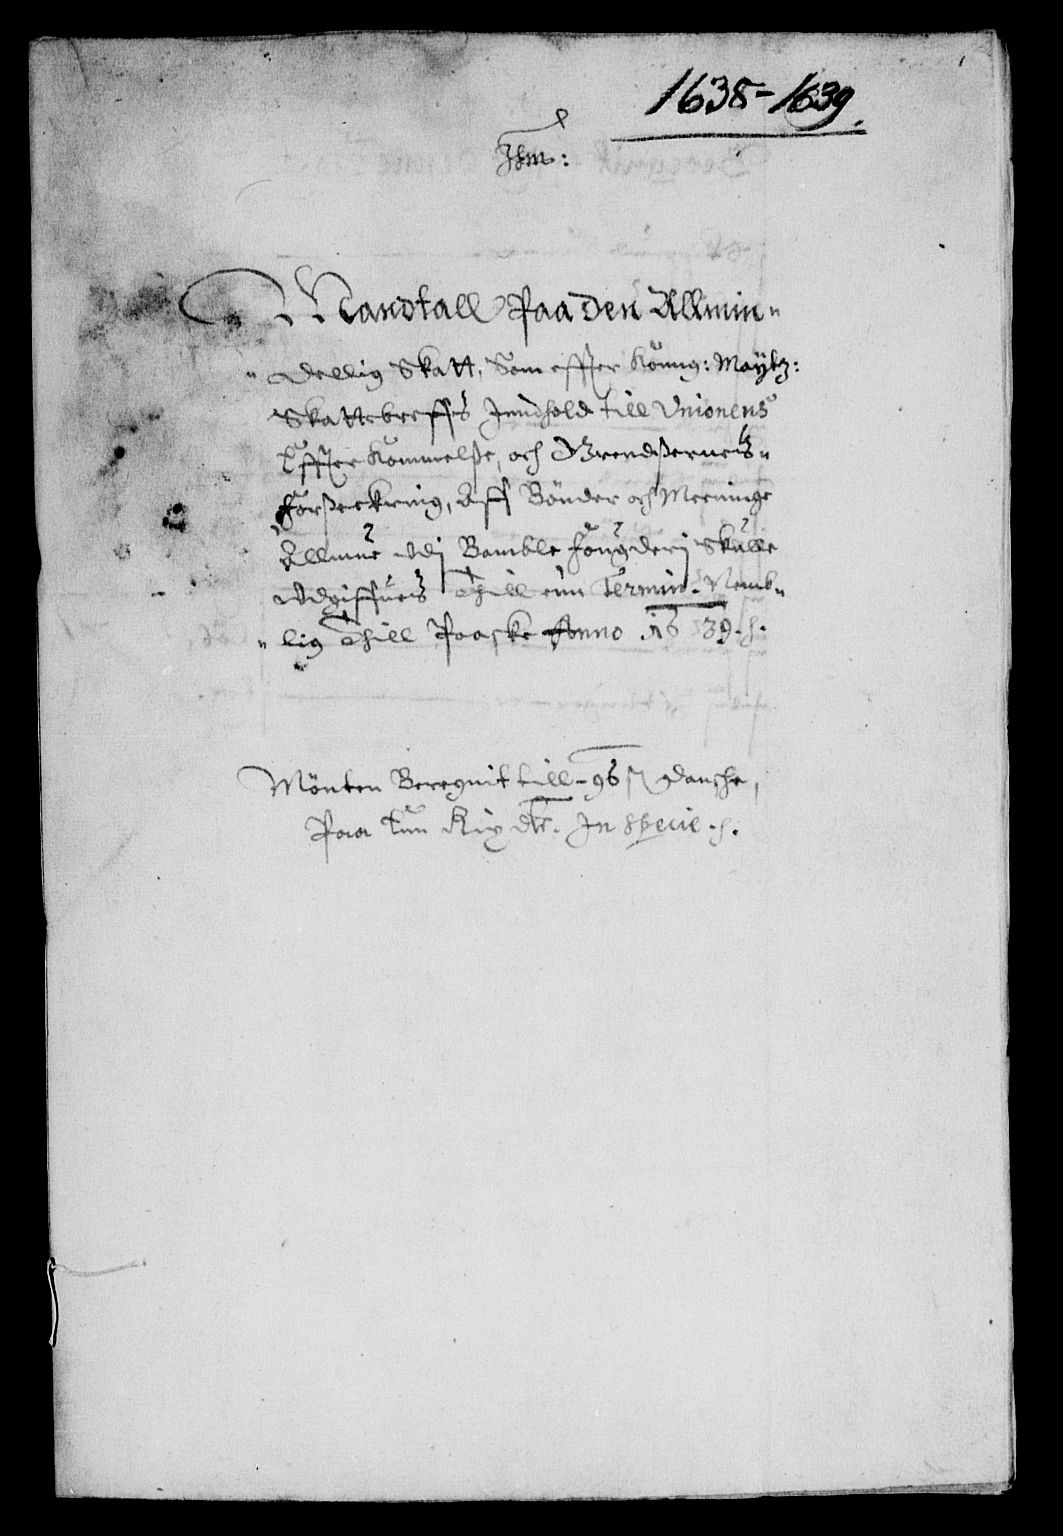 1638-1639.
Jhm:
Mandtall Paa den Allmin„
„ dellig Skatt, Som effter Könng: Maÿtz:
Skattebreffs Jnndhold till Vnionens
Effter Kommelße, och Grendßernes„
Forßeckring, Aff Bönder och Meeninge
Allmue vdj Bamble fougderj Skulle
Vdgiffues Thill enn Termin. Nemb„
„ lig Thill Paaske Anno 1639.
Mönten Beregnit till 96 ß danske,
Paa Enn Rix dlr. Jn Specie.